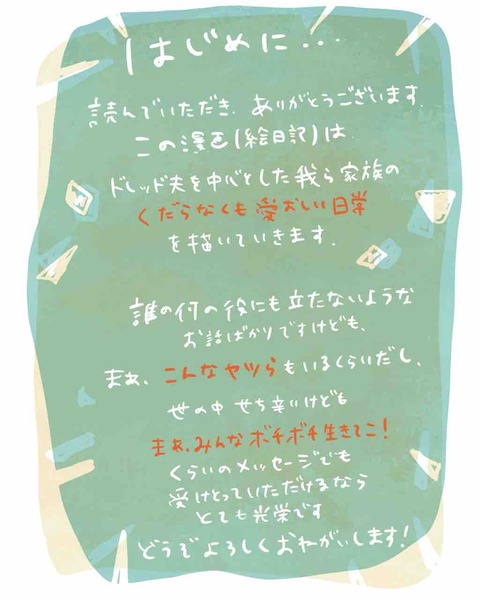 はじめに...
読んでいただき、ありがとうございます。
この漫画(絵日記)は
ドレッド夫を中心とした我ら家族の
くだらなくも愛おしい日常
を描いていきます。
誰の何の役にも立たないような
お話ばかりですけども、
まぁ、こんなヤツらもいるくらいだし、
世の中 せち辛いけども
まぁ、みんなボチボチ生きてこ!
くらいのメッセージでも
受けとっていただけるなら
とても光栄です
どうぞよろしくおねがいします!